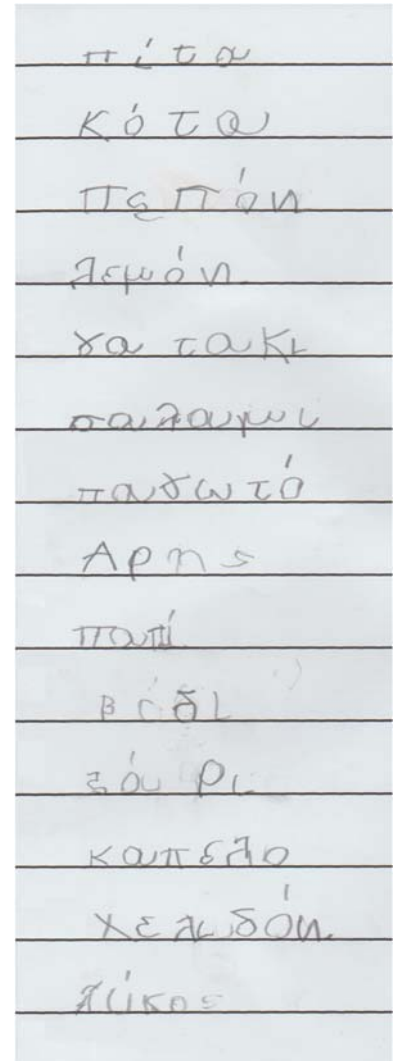 πίτα
κότα
πεπόνι
λεμόνι
γα τακι
σαλαμι
παγωτό
Αρης
παπί
βόδι
ζά ρι
καπελο
χελιδόνι
λύκος